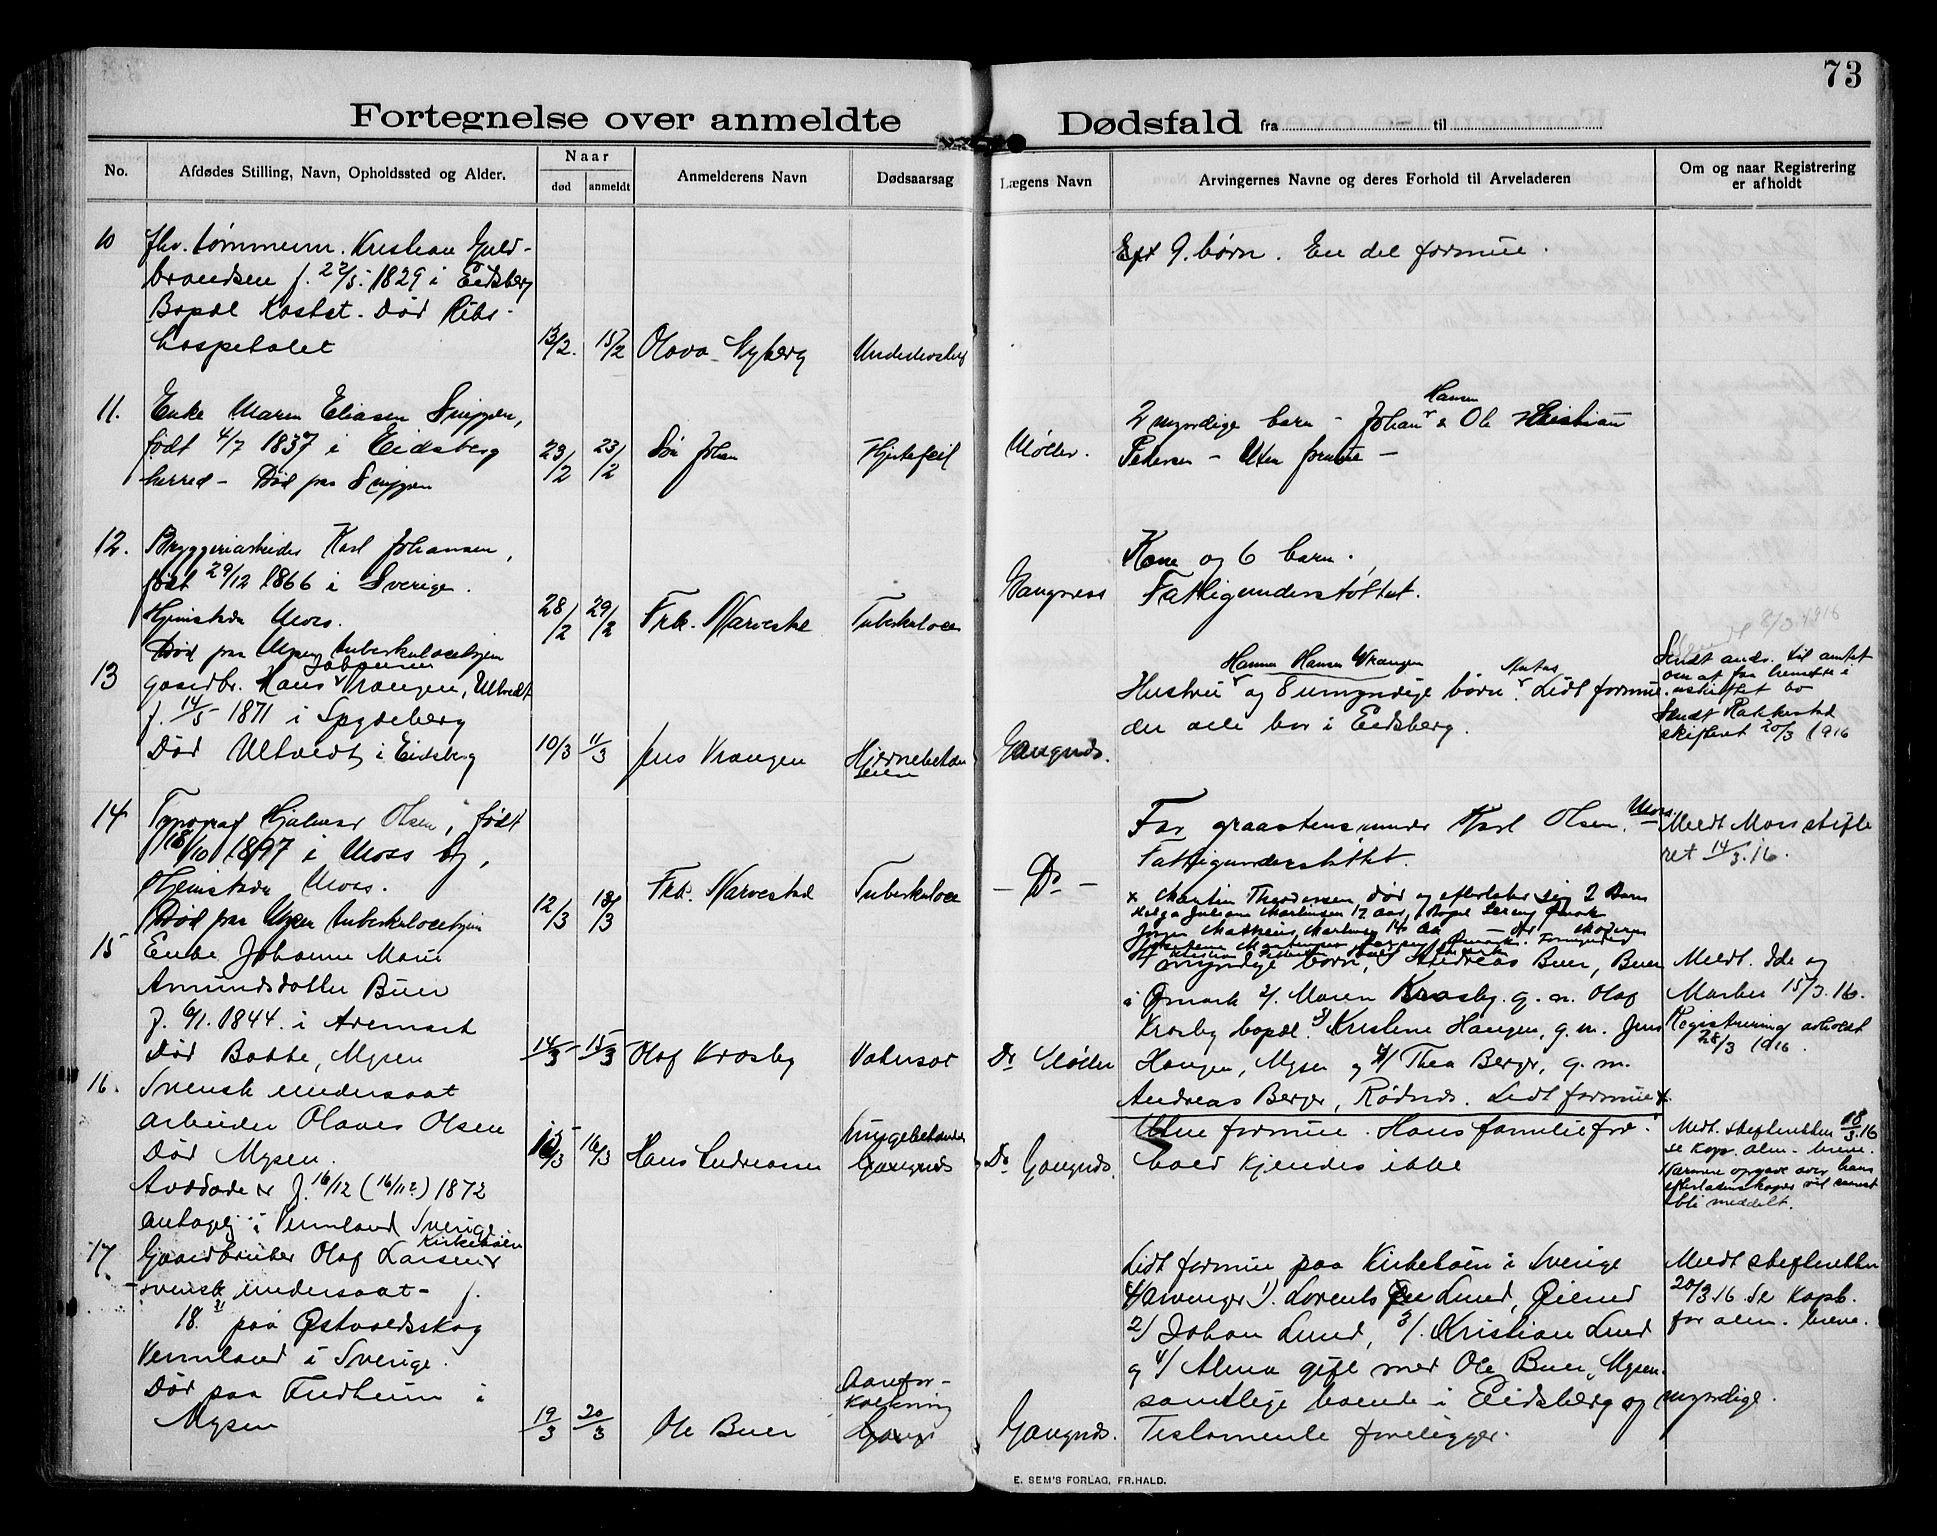 73
Fortegnelse over anmeldte Dødsfald fra til
No.
Afdødes Stilling, Navn, Opholdssted og Alder.
Naar
død
anmeldt
Anmelderens Navn
Dødsaarsag
Lægens Navn
Arvingernes Navne og deres Forhold til Arveladeren
Om og naar Registrering
er afholdt
10
fhv. tømmerm. Kristian Guld-
brandsen f. 22/5. 1829 i Eidsberg
Bopæl Kastet. Død Ribs-
hospitalet
13/2. 15/2 Olava Nyberg
Eft 9. børn. En del formue.
11.
Enke Maren Eliasen Snippen,
født 4/7 1837 i Eidsberg
herred – Død paa Snippen
23/2 23/2 Søn Johan Hjertefeil Møller.
Hansen
2 myndige barn – Johan & Ole Kristian
Pedersen – Uten formue –
12.
Bryggeriarbeider Karl Johansen,
født 29/12 1866 i Sverige.
Hjemsted Moss.
Død paa Mysen tuberkulosehjem
28/2 29/2 Frk. Narvestad Tuberkulose Gangnæs
Kone og 6 barn.
Fattigunderstøttet.
13
Johansen
gaardbr. Hans Vrangen, Ultvedt
f. 14/5 1871 i Spydeberg
Død Ultvedt i Eidsberg
10/3 11/3 Jens Vrangen Hjernebetændelsen Gangnæs.
Hanna Hansen Vrangen
Hustru og 8 umyndige børn. Lidt formue.
der alle bor i Eidsberg.
8/3 1916
Sendt ands. til amtet
om at faa hensitte i
uskiftet bo
Sendt Rakkestad
skifteret 20/3 1916
14
Typograf Hjalmar Olsen, født
18/10 1897 i Moss by,
Hjemsted Moss.
Død paa Mysen tuberkulosehjem
12/3 13/3 Frk. Narvestad Tuberkulose – Do –
Far, graastensminder Karl Olsen. Moss
Fattigunderstøttet.
Meldt Moss skifte
ret 14/3.16.
x Martin Theodorsen død og efterlater sig 2 Barn
Helga Juliane Martinsen 17 aar, Bopæl Sereng Ømark
15
Enke Johanne Marie
Amundsdatter Buer
f. 6/1. 1844. i Aremark
Død Bakke, Mysen
14/3 15/3 Olaf Krosby Vatersot Dr Møller
4 myndige børn, 1/ Andreas Buer, Buer
i Ømark 2/. Maren Krosby. g. m. Olaf
Krosby bopæl 3/ Kristine Haugen, g. m. Jens
Haugen, Mysen og 4/ Thea Berger, g. m.
Andreas Berger, Rødnæs. Lidt formue x.
Meldt. Ide og
Marker 15/3.16.
Registrering avholdt
28/3 1916.
16.
Svensk undersaat
arbeider Olaves Olsen
Død Mysen.
Avdøde er f. 16/12 (16/11?) 1872
antagelig i Vermland Sverige
15/3 16/3 Hans Andreassen Lungebetændelse Gangnæs Dr Gangnæs.
Uten formue. Hans familiefor-
hold kjendes ikke
Medt. skifteretten 18/3.16
se kop. alm. breve.
Nærmere opgave over hans
efterladenskaper vil senest
bli meddelt.
17.
Kirkebøen
Gaardbruker Olaf Larsen
– svensk undersaat – f.
18. paa Østvaldsskog
Vermland i Sverige.
Død paa Fredheim i
Mysen
19/3 20/3 Ole Buer Aarefor-
kalkning Gangnæs.
Lidt formue paa Kirkebøen i Sverige
4/ arvinger 1/. Lorents Lund, Øiend
2/ Johan Lund, 3/. Kristian Lund
og 4/ Alma gift med Ole Buer, Mysen.
samtlige boende i Eidsberg og myndige.
Testamente foreligger.
Meldt skifteretten
20/3 16. Se Kopb.
for alm. breve.
E. SEM'S FORLAG, FR.HALD.